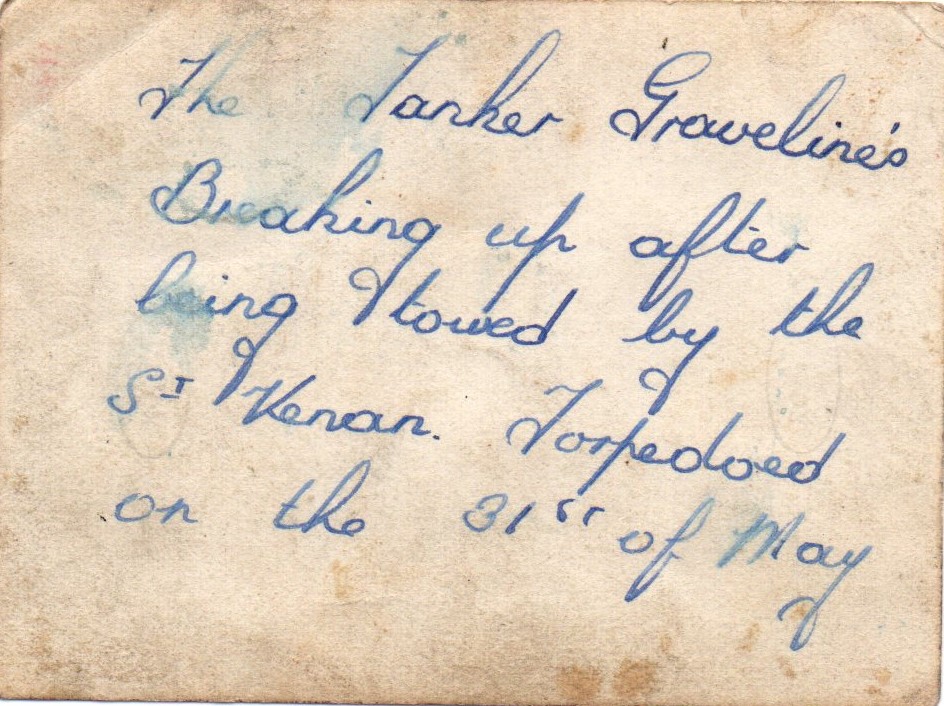 The Tanker Graveline's
Breaking up after
being towed by the
St Kenan. Torpedoed
on the 31st of May